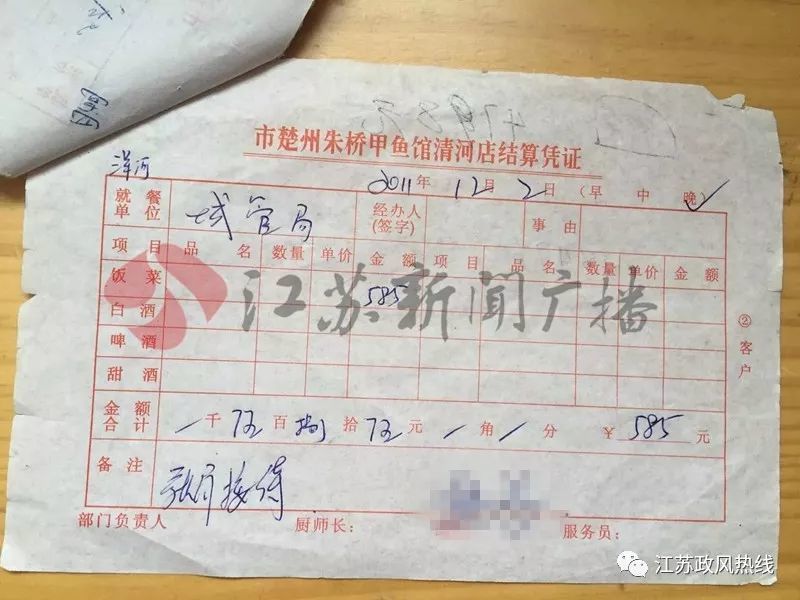 市楚州朱桥甲鱼馆清河店结算凭证
洋河
2011年12月2日（早 中 晚✓）
就餐单位 城管局 经办人(签字) 事由
项目 品名 数量 单价 金额 项目 品名 数量 单价 金额
饭菜 585
白酒
啤酒
甜酒
②客户
金额合计 / 千 伍 百 捌 拾 伍 元 / 角 / 分 ￥585元
备注 接待
部门负责人 厨师长： 服务员：
江苏新闻广播
江苏政风热线